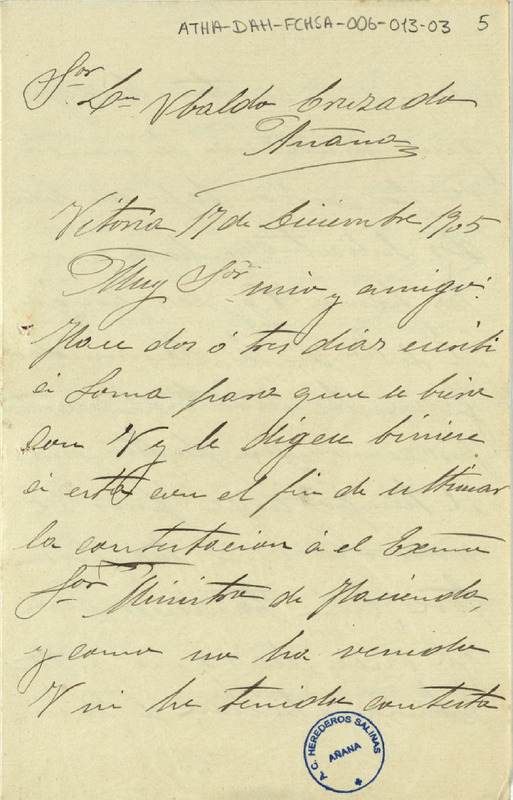 ATHA-DAH-FCHSA-006-013-03 5
Sor. Dn Ubaldo Cruzado
Añana
Vitoria 17 de Diciembre 1905
Muy Sor. mio y amigo:
Hace dos ó tres dias escribi
á Loma para que se biera
con V y le digese biniese
á esta con el fin de ultimar
la contestacion á el Exmo
Sor Ministro de Hacienda,
y como no ha venido
V ni he tenido contesta
A. C. HEREDEROS SALINAS
AÑANA